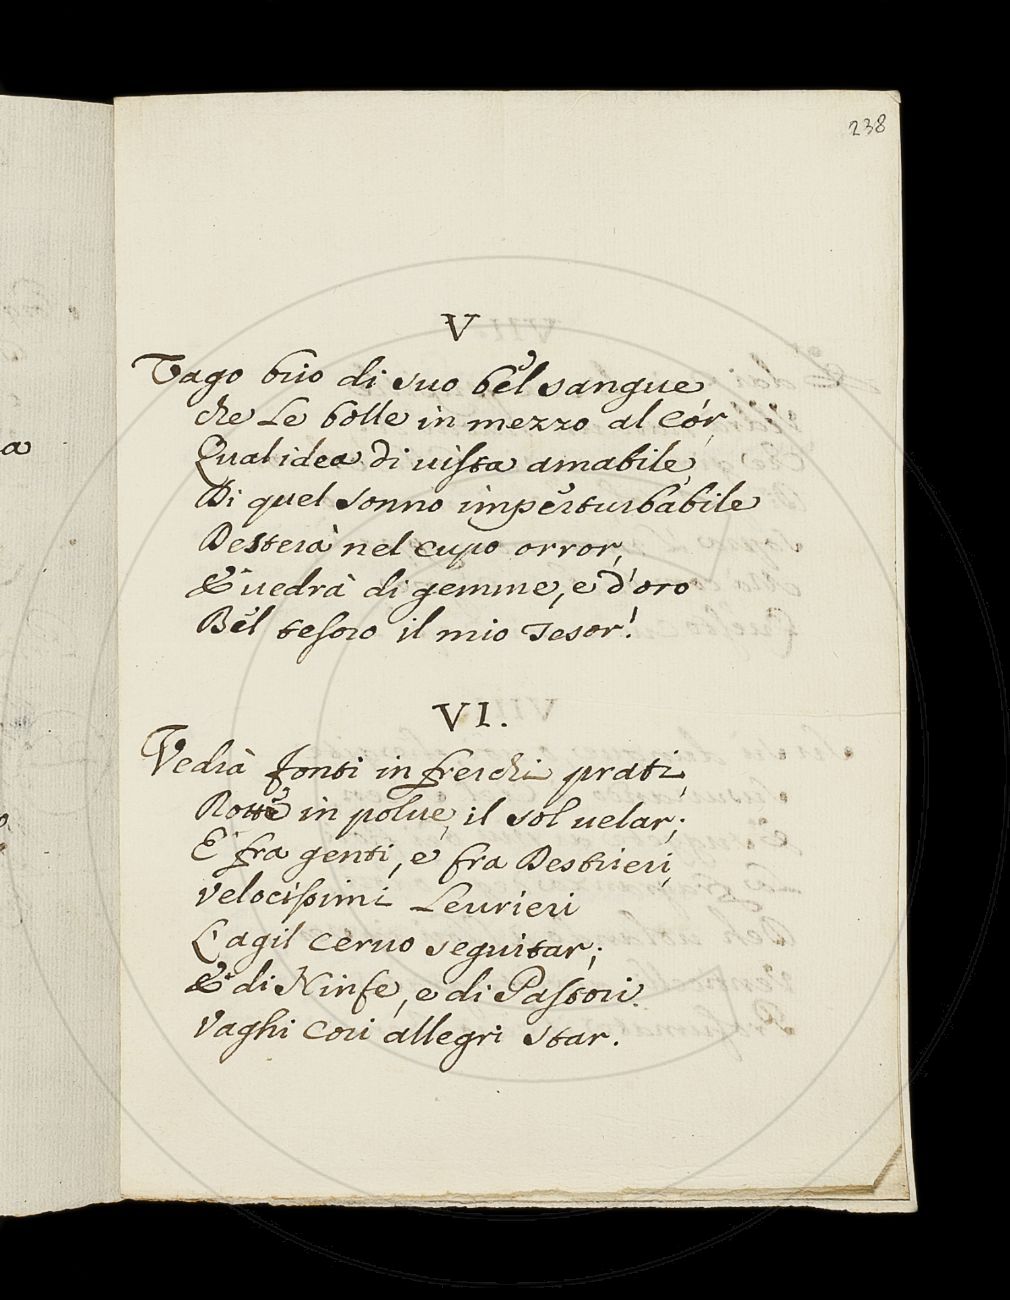 238
V
Vago brio di suo bèl sangue
che Le bolle in mezzo al Cor,
Qual idea di uista amabile
Di quel sonno impèrturbàbile
Desterà nel cupo orror,
E uedrà di gemme, e d'oro
Bèl tesoro il mio Tesor!
VI.
Vedrà fonti in freschi prati,
Rotte in polue, il sol uelar;
E fra genti, e fra Destrieri,
Velocissimi Leurieri
L'agil ceruo seguitar;
E di Ninfe, e di Pastori
Vaghi Cori allegri star.
a